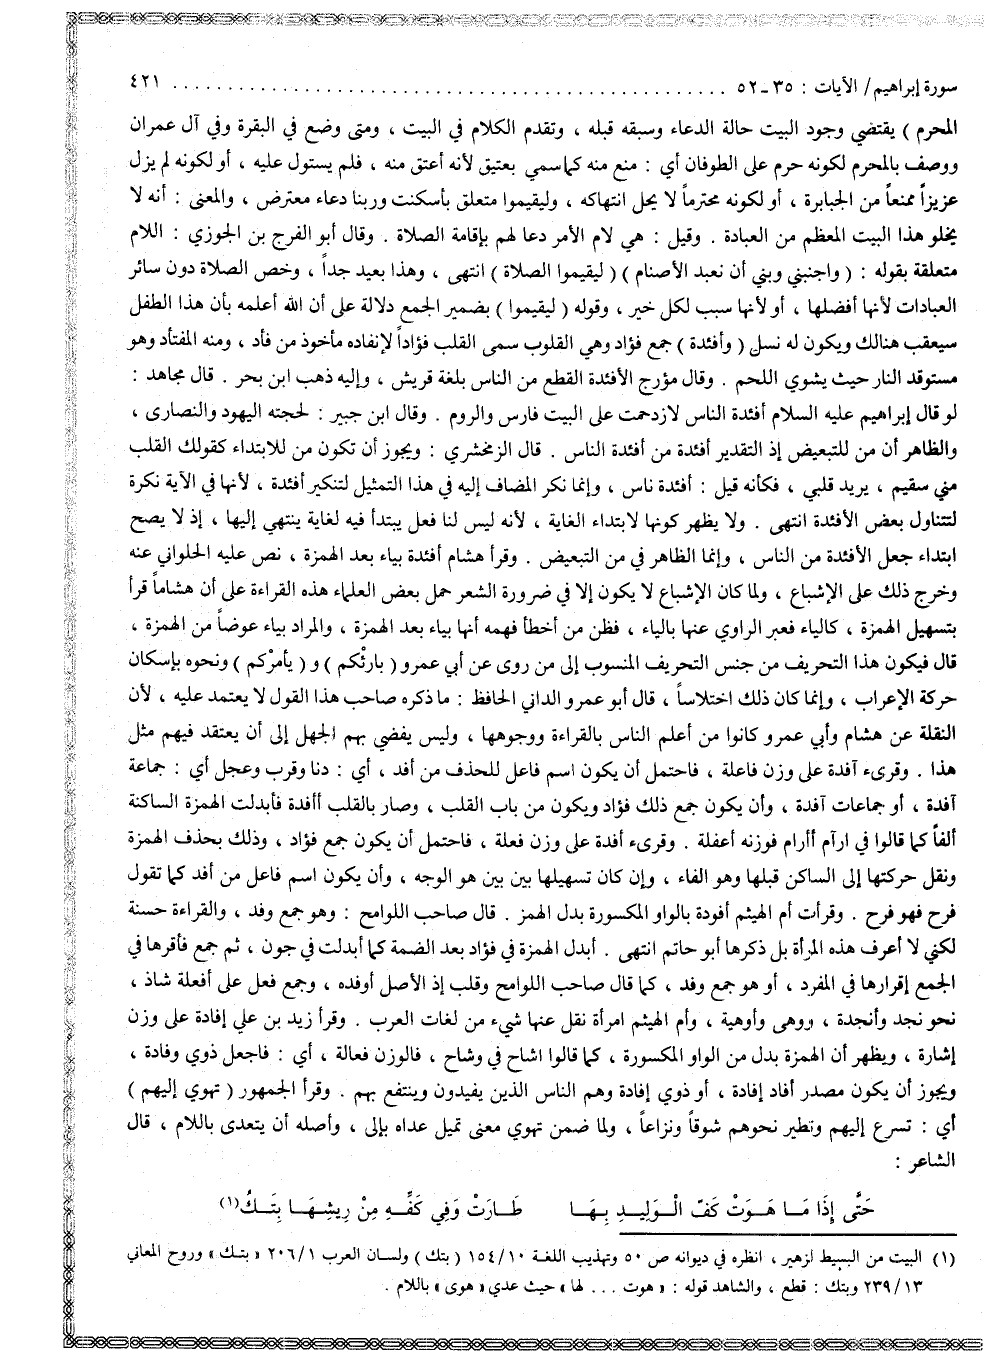 سورة إبراهيم/ الآيات : ٣٥ـ٥٢ . . . . . . . . . . . . . . . . . . . . . . . . . . . . . . . . . . . . . . . . . . ٤٢١
المحرم ) يقتضي وجود البيت حالة الدعاء وسبقه قبله ، وتقدم الكلام في البيت ، ومتى وضع في البقرة وفي آل عمران
ووصف بالمحرم لكونه حرم على الطوفان أي : منع منه كما سمي بعتيق لأنه أعتق منه ، فلم يستول عليه ، أو لكونه لم يزل
عزيزاً ممنعاً من الجبابرة ، أو لكونه محترماً لا يحل انتهاكه ، وليقيموا متعلق بأسكنت وربنا دعاء معترض ، والمعنى : أنه لا
يخلو هذا البيت المعظم من العبادة . وقيل : هي لام الأمر دعا لهم بإقامة الصلاة . وقال أبو الفرج بن الجوزي : اللام
متعلقة بقوله : ( واجنبني وبني أن نعبد الأصنام ) ( ليقيموا الصلاة ) انتهى ، وهذا بعيد جداً ، وخص الصلاة دون سائر
العبادات لأنها أفضلها ، أو لأنها سبب لكل خير ، وقوله ( ليقيموا ) بضمير الجمع دلالة على أن الله أعلمه بأن هذا الطفل
سيعقب هنالك ويكون له نسل ( وأفئدة ) جمع فؤاد وهي القلوب سمى القلب فؤاداً لإنفاده مأخوذ من فأد ، ومنه المفتأد وهو
مستوقد النار حيث يشوي اللحم . وقال مؤرج الأفئدة القطع من الناس بلغة قريش ، وإليه ذهب ابن بحر . قال مجاهد :
لو قال إبراهيم عليه السلام أفئدة الناس لازدحمت على البيت فارس والروم . وقال ابن جبير : لحجته اليهود والنصارى ،
والظاهر أن من للتبعيض إذ التقدير أفئدة من أفئدة الناس . قال الزمخشري : ويجوز أن تكون من للابتداء كقولك القلب
مني سقيم ، يريد قلبي ، فكأنه قيل : أفئدة ناس ، وإنما نكر المضاف إليه في هذا التمثيل لتنكير أفئدة ، لأنها في الآية نكرة
لتتناول بعض الأفئدة انتهى . ولا يظهر كونها لابتداء الغاية ، لأنه ليس لنا فعل يبتدأ فيه لغاية ينتهي إليها ، إذ لا يصح
ابتداء جعل الأفئدة من الناس ، وإنما الظاهر في من التبعيض . وقرأ هشام أفئدة بياء بعد الهمزة ، نص عليه الحلواني عنه
وخرج ذلك على الإشباع ، ولما كان الإشباع لا يكون إلا في ضرورة الشعر حمل بعض العلماء هذه القراءة على أن هشاماً قرأ
بتسهيل الهمزة ، كالياء فعبر الراوي عنها بالياء ، فظن من أخطأ فهمه أنها بياء بعد الهمزة ، والمراد بياء عوضاً من الهمزة ،
قال فيكون هذا التحريف من جنس التحريف المنسوب إلى من روى عن أبي عمرو ( بارئْكم ) و ( يأمرْكم ) ونحوه بإسكان
حركة الإعراب ، وإنما كان ذلك اختلاساً ، قال أبو عمرو الداني الحافظ : ما ذكره صاحب هذا القول لا يعتمد عليه ، لأن
النقلة عن هشام وأبي عمرو كانوا من أعلم الناس بالقراءة ووجوهها ، وليس يفضي بهم الجهل إلى أن يعتقد فيهم مثل
هذا . وقرىء آفدة على وزن فاعلة ، فاحتمل أن يكون اسم فاعل للحذف من أفد ، أي : دنا وقرب وعجل أي : جماعة
آفدة ، أو جماعات آفدة ، وأن يكون جمع ذلك فؤاد ويكون من باب القلب ، وصار بالقلب أأفدة فأبدلت الهمزة الساكنة
ألفاً كما قالوا في ارآم أأرام فوزنه أعفلة . وقرىء أفدة على وزن فعلة ، فاحتمل أن يكون جمع فؤاد ، وذلك بحذف الهمزة
ونقل حركتها إلى الساكن قبلها وهو الفاء ، وإن كان تسهيلها بين بين هو الوجه ، وأن يكون اسم فاعل من أفد كما تقول
فرح فهو فرح . وقرأت أم الهيثم أفودة بالواو المكسورة بدل الهمز . قال صاحب اللوامح : وهو جمع وفد ، والقراءة حسنة
لكني لا أعرف هذه المرأة بل ذكرها أبو حاتم انتهى . أبدل الهمزة في فؤاد بعد الضمة كما أبدلت في جون ، ثم جمع فأقرها في
الجمع إقرارها في المفرد ، أو هو جمع وفد ، كما قال صاحب اللوامح وقلب إذ الأصل أوفده ، وجمع فعل على أفعلة شاذ ،
نحو نجد وأنجدة ، ووهى وأوهية ، وأم الهيثم امرأة نقل عنها شيء من لغات العرب . وقرأ زيد بن علي إفادة على وزن
إشارة ، ويظهر أن الهمزة بدل من الواو المكسورة ، كما قالوا اشاح في وشاح ، فالوزن فعالة ، أي : فاجعل ذوي وفادة ،
ويجوز أن يكون مصدر أفاد إفادة ، أو ذوي إفادة وهم الناس الذين يفيدون وينتفع بهم . وقرأ الجمهور ( تهوي إليهم )
أي : تسرع إليهم وتطير نحوهم شوقاً ونزاعاً ، ولما ضمن تهوي معنى تميل عداه بإلى ، وأصله أن يتعدى باللام ، قال
الشاعر :
حَتَّى إِذَا مَـا هَـوَتْ كَفّ الْـوَلِيـدِ بِـهَـا طَـارَتْ وَفِي كَفِّـهِ مِنْ رِيشِـهَـا بِتَـكُ(١)
(١) البيت من البسيط لزهير ، انظره في ديوانه ص ٥٠ وتهذيب اللغة ١٥٤/١٠ ( بتك ) ولسان العرب ٢٠٦/١ « بتك » وروح المعاني
٢٣٩/١٣ وبتك : قطع ، والشاهد قوله : « هوت . . . لها » حيث عدي « هوى » باللام .